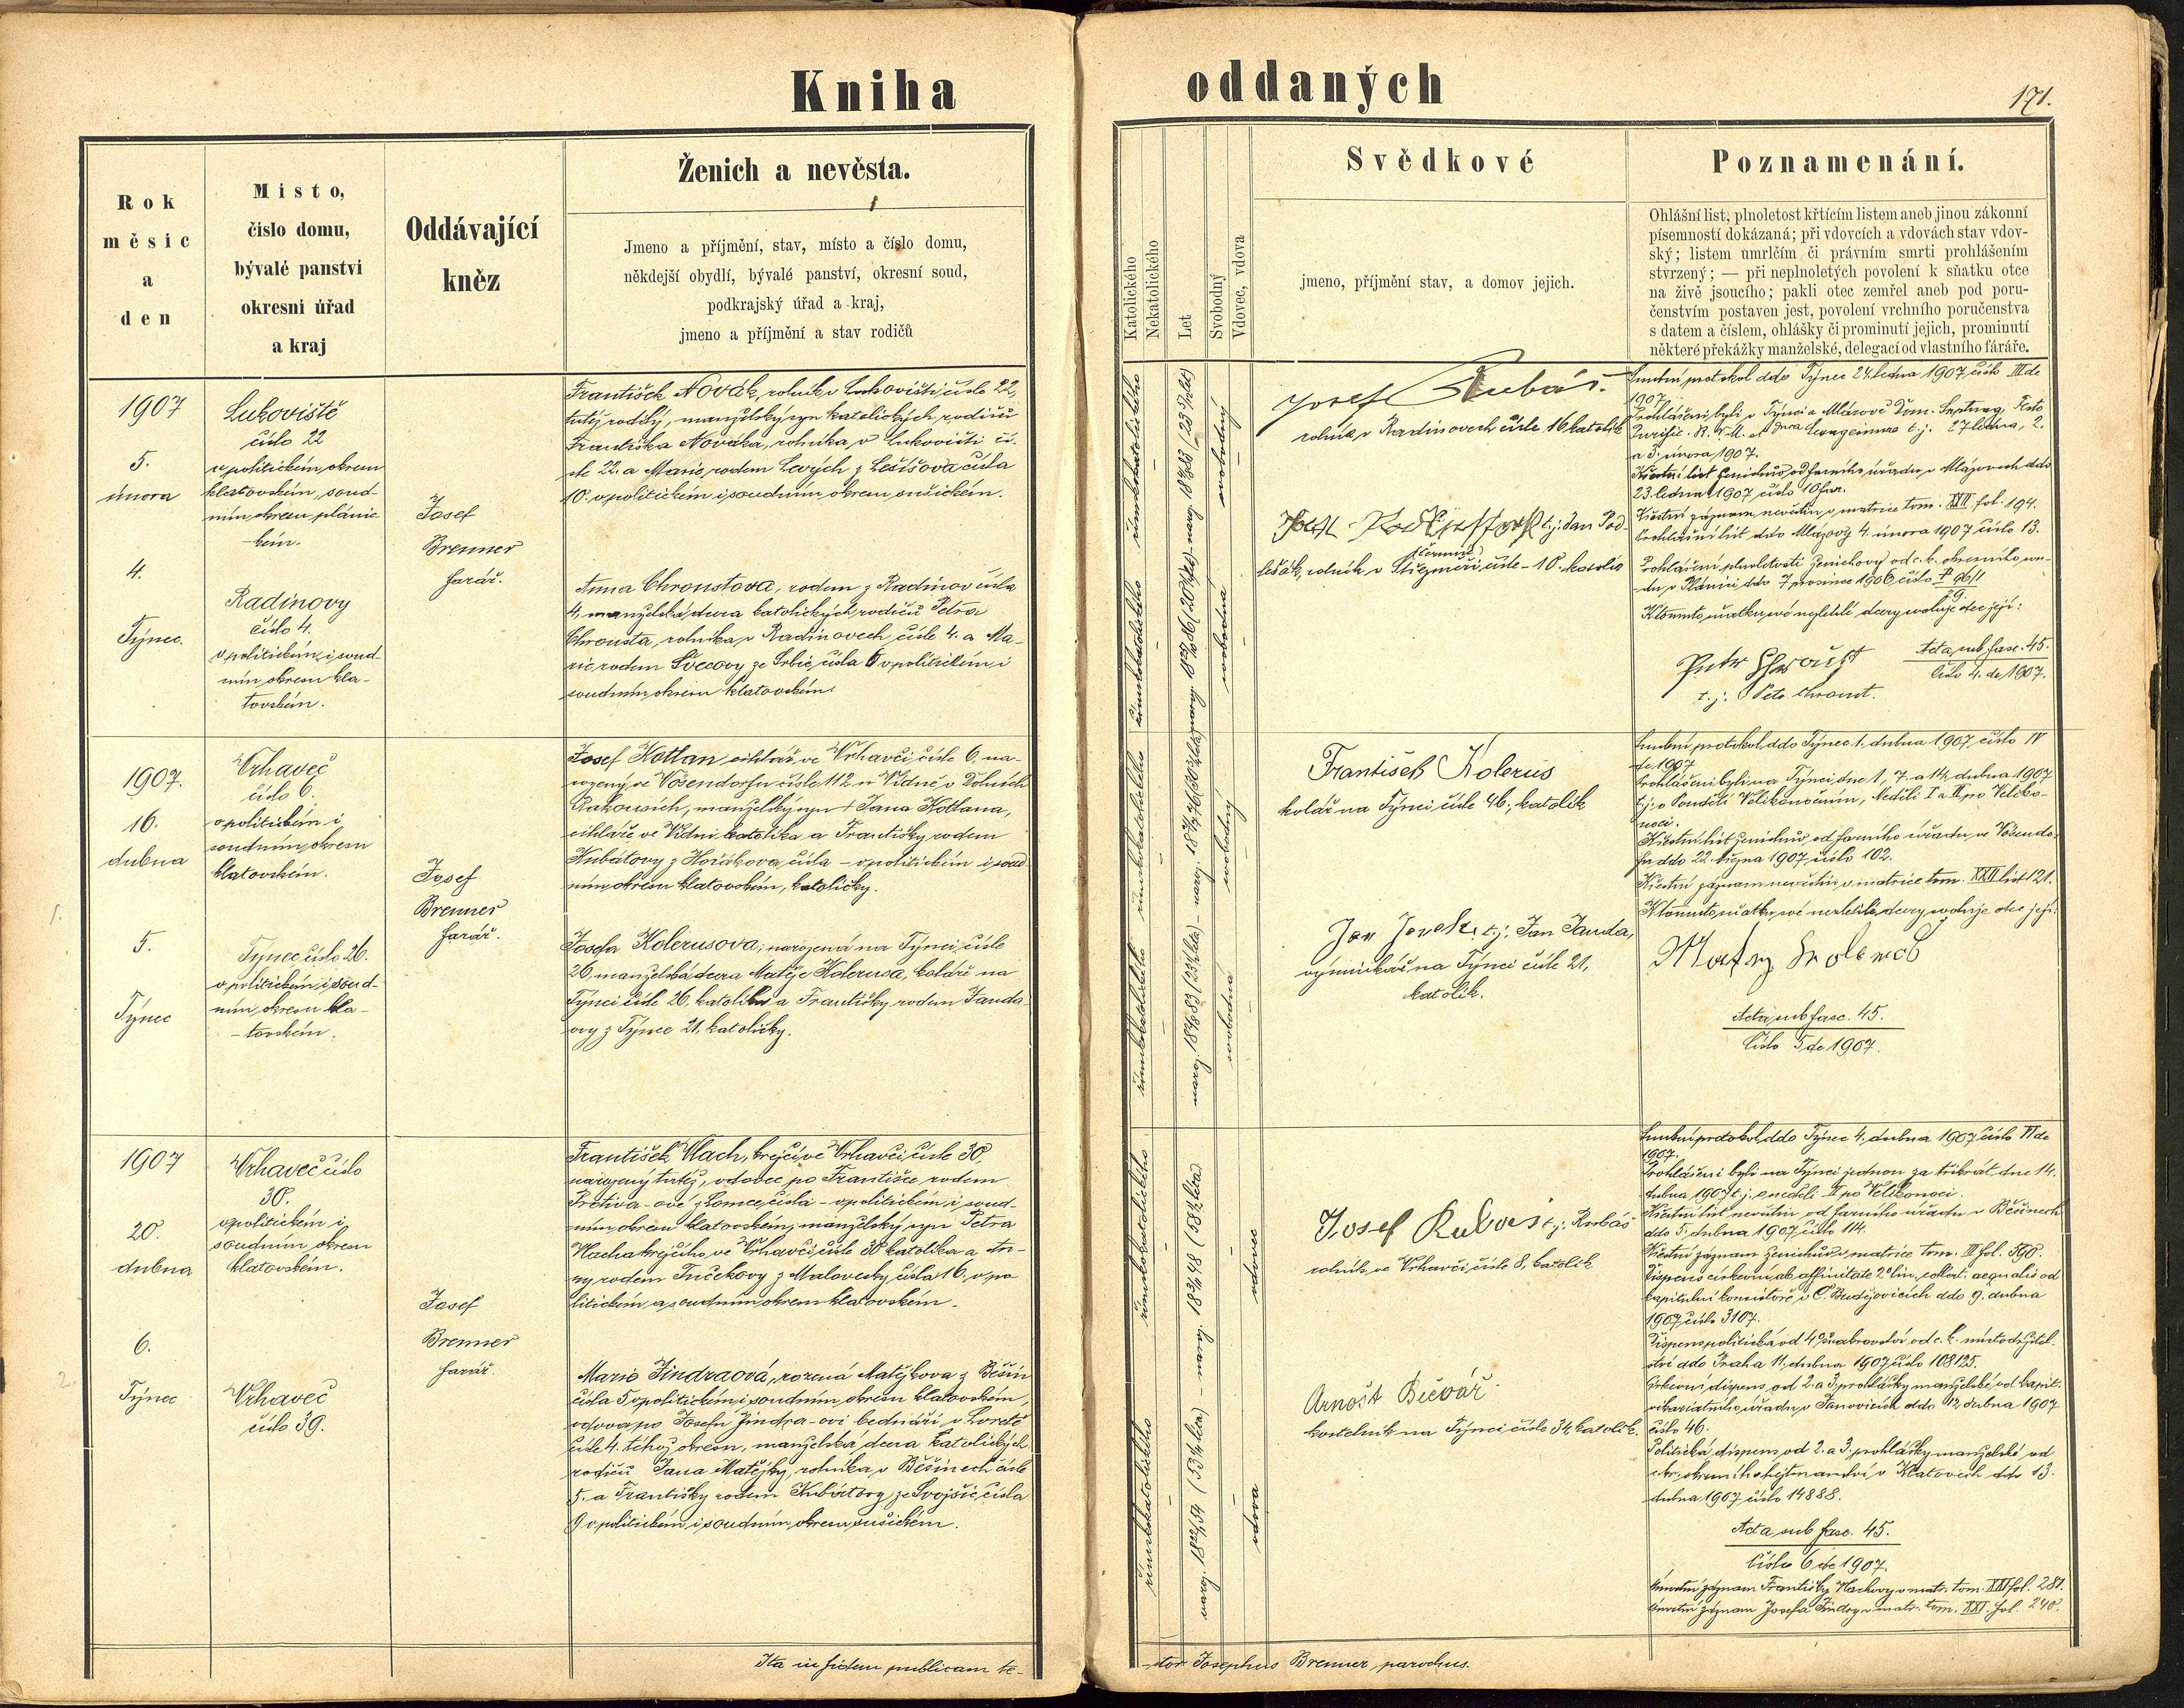 Kniha
oddaných
171.
Rok
měsíc
a
den
Místo,
číslo domu,
bývalé panství
okresní úřad
a kraj
Oddávající
kněz
Ženich a nevěsta.
Jmeno a příjmění, stav, místo a číslo domu,
někdejší obydlí, bývalé panství, okresní soud,
podkrajský úřad a kraj,
jmeno a příjmění a stav rodičů
Katolického
Nekatolického
Let
Svobodný
Vdovec, vdova
Svědkové
jmeno, příjmění stav, a domov jejich.
Poznamenání.
Ohlášní list, plnoletost křtícím listem aneb jinou zákonní
písemností dokázaná; při vdovcích a vdovách stav vdov-
ský; listem úmrlčím či právním smrti prohlášením
stvrzený; — při neplnoletých povolení k sňatku otce
na živě jsoucího; pakli otec zemřel aneb pod poru-
čenstvím postaven jest, povolení vrchního poručenstva
s datem a číslem, ohlášky či prominutí jejich, prominutí
některé překážky manželské, delegací od vlastního fáráře.
1907
5.
února
4.
Týnec.
Lukoviště
číslo 22
v politickém okresu
klatovském, soud-
ním okresu pláni-
ckém.
Radinovy
číslo 4.
v politickém i soud-
ním okresu kla-
tovském.
Josef
Brenner
farář.
František Novák, rolník v Lukovišti čísle 22,
tutéž rodilý, manželský syn katolických rodičů
Františka Nováka, rolníka v Lukovišti čí-
sle 22. a Marie, rodem Levých z Lešišova čísla
10. v politickém i soudním okresu sušickém.
Anna Chroustova, rodem z Radinov čísla
4, manželská dcera katolických rodičů Petra
Chrousta, rolníka v Radinovech čísle 4. a Ma-
rie, rodem Švecovy ze Srbic, čísla 6 v politickém i
soudním okresu klatovském.
římskokatolického
svobodný
římskokatolického
svobodná
Josef Kubás.
rolník v Radinovech čísle 16 katolík
t.j: Jan Pod-
lešák, rolník v Střezměři čísle - 10. katolík
Snubní protokol ddo Týnec 24. ledna 1907 číslo III de
1907.
Prohlášeni byli v Týnci a Mlázově Dom. Septuag, Festo
Purific. B. V. M. et Dnca Sexagesimae t.j. 27 ledna, 2.
a 3. února 1907.
Křestní list ženichův od farního úřadu v Mlázovech ddo
23. ledna 1907 číslo 10 far.
Křestní záznam nevěstin v matrice tom. XXII fol. 194.
Prohlašní list ddo Mlázovy 4. února 1907 číslo 13.
Prohlášení plnoletosti ženichovy od c. k. okresního sou-
du v Plánici ddo 7 prosince 1906 číslo P 96/1
29.
K tomuto sňatku své nezletilé dcery svoluje otec její:
Petr Chroust
t. j: Petr Chroust.
Acta sub fasc. 45.
Číslo 4. de 1907.
1907.
16.
dubna
5.
Týnec
1.
Vrhaveč
číslo 6.
v politickém i
soudním okresu
klatovském.
Týnec číslo 26.
v politickém i soud-
ním okresu kla-
- tovském.
Josef
Brenner
farář.
Josef Kotlan, cihlář ve Vrhavči čísle 6, na-
rozený ve Vösendorfu čísle 112 u Vídně v Dolních
Rakousích, manželský syn † Jana Kotlana,
cihláře ve Vídni katolíka a Františky rodem
Kubátovy z Hořákova čísla - v politickém i soud-
ním okresu klatovském, katoličky.
Josefa Kolerusova, narozená na Týnci čísle
26, manželská dcera Matěje Kolerusa, koláře na
Týnci čísle 26, katolíka a Františky rodem Janda-
ovy z Týnce 21, katoličky.
římskokatolického
svobodný
římskokatolického
svobodná
František Kolerus
kolář na Týnci čísle 46, katolík
t.j: Jan Janda,
výminkář na Týnci čísle 21,
katolík.
Snubní protokol ddo Týnec 1. dubna 1907 číslo IV
de 1907
Prohlášeni byli na Týnci dne 1, 7. a 14. dubna 1907
t.j: v Pondělí Velikonočním, Neděli I a II po Veliko-
noci.
Křestní list ženichův od farního úřadu ve Vösendor-
fu ddo 22. října 1907 číslo 102.
Křestní záznam nevěstin v matrice tom. XXII list 121.
K tomuto sňatku své nezletilé dcery svoluje otec její:
Acta sub fasc. 45.
Číslo 5 de 1907.
1907
20.
dubna
6.
Týnec
2.
Vrhaveč číslo
30.
v politickém i
soudním okresu
klatovském.
Vrhaveč
číslo 39.
Josef
Brenner
farář.
František Vlach, krejčí ve Vrhavči čísle 30,
narozený tutéž, vdovec po Františce rodem
Protiva-ové z Lomce čísla - v politickém i soud-
ním okresu klatovském, manželský syn Petra
Vlacha krejčího ve Vrhavči čísle 30 katolíka a An-
ny rodem Tučekovy z Malovesky čísla 16, v po-
litickém a soudním okresu klatovském.
Marie Jindraová, rozená Matějkova z Běšin
čísla 5 v politickém i soudním okresu klatovském,
vdova po Josefu Jindra-ovi bednáři v Loretě
čísle 4. téhož okresu, manželská dcera katolických
rodičů Jana Matějky, rolníka v Běšinech čísle
5. a Františky rodem Kubátovy ze Svojšic, čísla
9 v politickém i soudním okresu sušickém.
římskokatolického
vdovec
římskokatolického
vdova
Josef Rubas t.j: Rubáš
rolník ve Vrhavči čísle 8, katolík
Arnošt Bečvář
kostelník na Týnci čísle 34, katolík.
Snubní protokol ddo Týnec 4. dubna 1907 číslo VI de
1907.
Prohlášeni byli na Týnci jednou za třikrát dne 14.
dubna 1907 t.j. v neděli II po Velikonoci.
Křestní list nevěstin od farního úřadu v Běšinech
ddo 5. dubna 1907 číslo 114.
Křestní záznam ženichův v matrice tom. III fol. 590.
Dispens církevní ab affinitate 2° lin. collat. aequalis od
kapitulní konsistoře v Č. Budějovicích ddo 9. dubna
1907 číslo 3107.
Dispens politická od švakrovství od c. k. místodržitel-
ství ddo Praha 11. dubna 1907 číslo 108125.
Církevní dispens od 2. a 3. prohlášky manželské od kapit.
vikariatního úřadu v Janovicích ddo 12 dubna 1907
číslo 46.
Politická dispens od 2. a 3. prohlášky manželské od
c. k. okresního hejtmanství v Klatovech ddo 13.
dubna 1907 číslo 14888.
Acta sub fasc. 45.
Číslo 6 de 1907.
Úmrtní záznam Františky Vlachovy v matr. tom. XXI fol. 281.
Úmrtní záznam Josefa Jindry v matr. tom. XXI. fol. 240.
Ita in fidem publicam te-
stor Josephus Brenner, parochus.